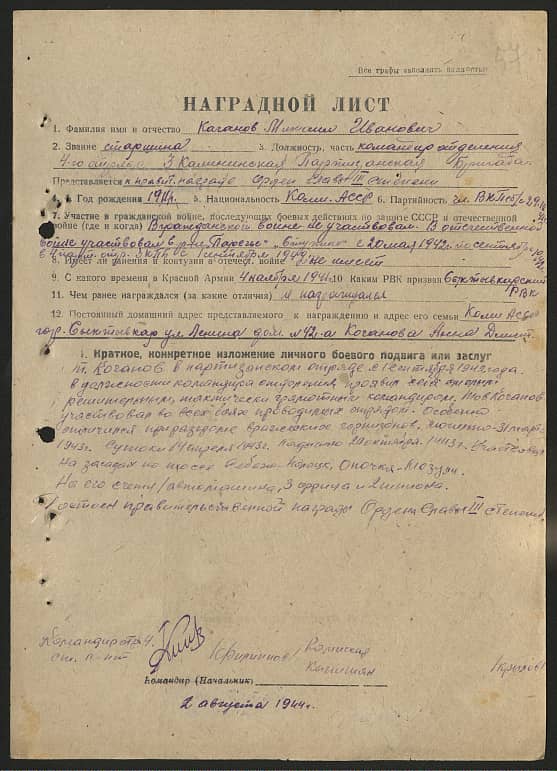 57
Все графы заполнять полностью
НАГРАДНОЙ ЛИСТ
1. Фамилия имя и отчество Каганов Михаил Иванович
2. Звание старшина 3. Должность, часть командир отделения
4-го отряда 3 Калининская Партизанская Бригада
Представляется к правит. награде Орден Славы III степени
4. Год рождения 1914 5. Национальность Коми-АССР 6. Партийность чл. ВКП(б)
7. Участие в гражданской войне, последующих боевых действиях по защите СССР и отечественной
войне (где и когда) В гражданской войне не участвовал. В отечественной
войне участвовал с 20 мая 1942
8. Имеет ли ранения и контузии в отечест. войне не имеет
9. С какого времени в Красной Армии 4 ноября 1941 10 Каким РВК призван Сыктывкарским
РВК
11. Чем ранее награждался (за какие отличия) не награждался
12. Постоянный домашний адрес представляемого к награждению и адрес его семьи Коми АССР
гор. Сыктывкар ул. Ленина дом № 42-а Каганова Анна
I. Краткое, конкретное изложение личного боевого подвига или заслуг
т. Каганов в партизанском отряде с 1 сентября 1942 года.
в должности командира отделения, проявил себя смелым
решительным, тактически грамотным командиром. Тов Каганов
участвовал во всех боях проводимых отрядом. Особенно
отличился при разгроме вражеских гарнизонов, 31 март
1943г. Сутоки 14 апреля 1943г. 1943г. Участвовал
На засадах на шоссе Полоцк, Опочка-
На его счету 1 автомашина, 3 фрица и 2 шпиона.
Достоин правительственной награды Ордена Славы III степени
Командир отр. 4.
ст. л-нт
Командир (Начальник)
2 августа 1944г.